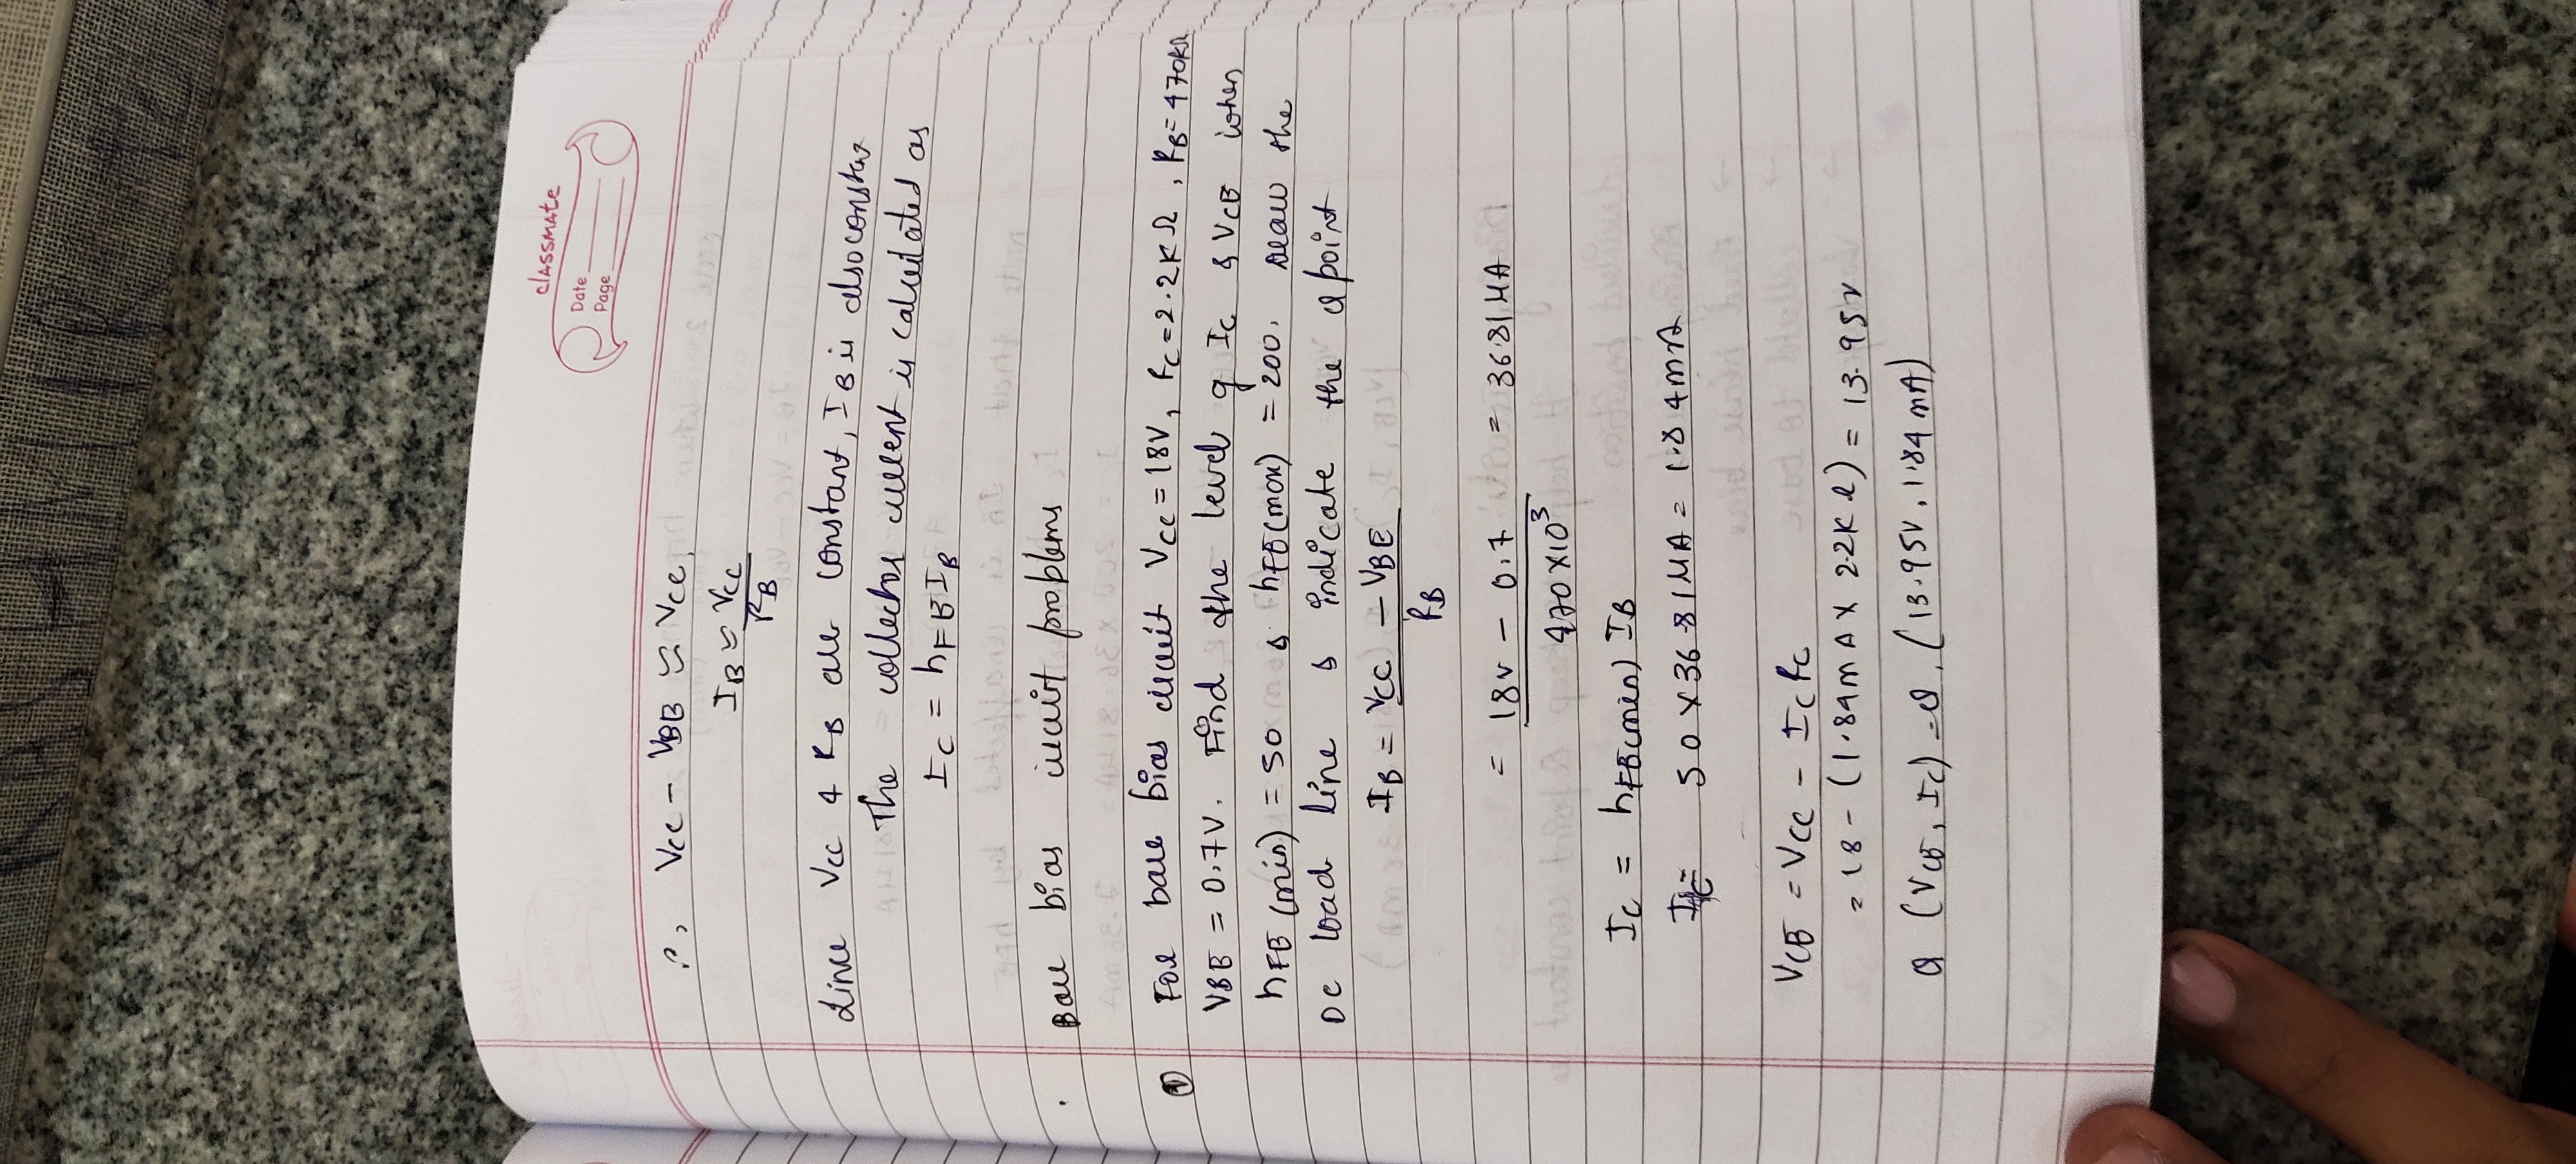 KASHMIR
classmate
Date
Page
∴, VCC - VBE ≈ VCC,
IB ≈ VCC
RB
Since VCC & RB are constant, IB is also constant
The collector current is calculated as
IC = hFE IB
Base bias circuit problems
① For base bias circuit VCC = 18V, RC = 2.2KΩ, RB = 470KΩ
VBE = 0.7V. Find the level of IC & VCE when
hFE (min) = 50 & hFE (max) = 200. Draw the
DC load line & indicate the Q point
IB = VCC - VBE
RB
= 18V - 0.7 = 36.81 μA
470 × 10³
IC = hFE(min) IB
IC = 50 × 36.81 μA = 1.84 mA
VCE = VCC - IC RC
= 18 - (1.84 mA × 2.2K Ω) = 13.95 V
Q (VCE, IC) = Q, (13.95V, 1.84 mA)